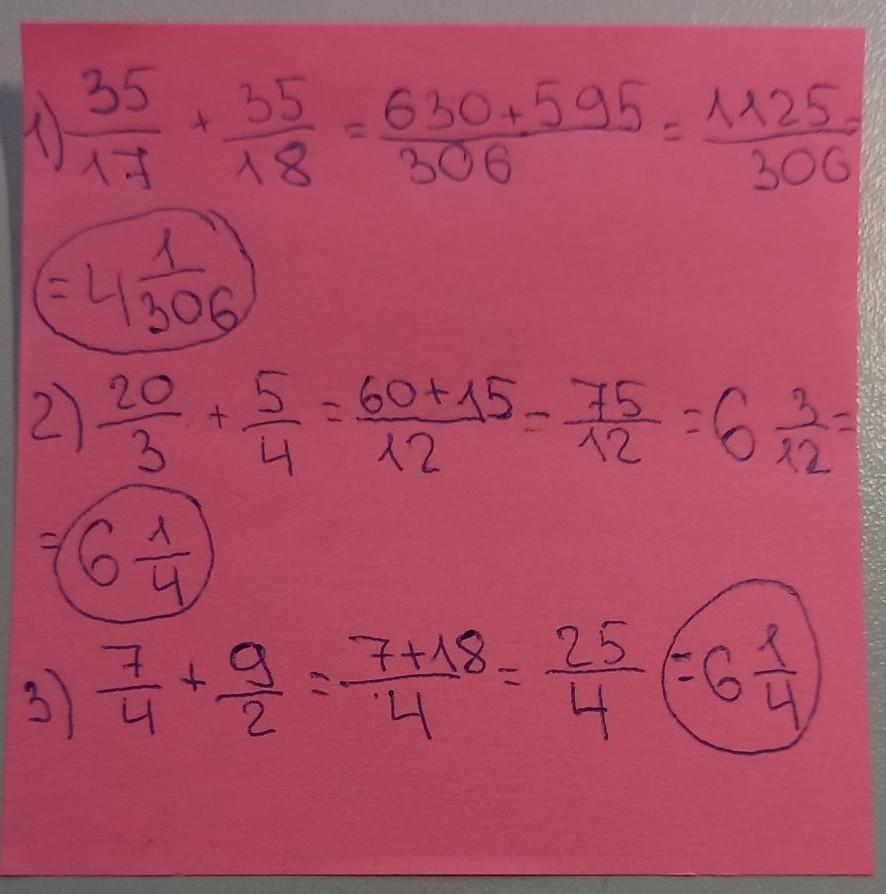 1) 35/17 + 35/18 = 630+595/306 = 1125/306 =
= 4 1/306
2) 20/3 + 5/4 = 60+15/12 = 75/12 = 6 3/12 =
= 6 1/4
3) 7/4 + 9/2 = 7+18/4 = 25/4 = 6 1/4